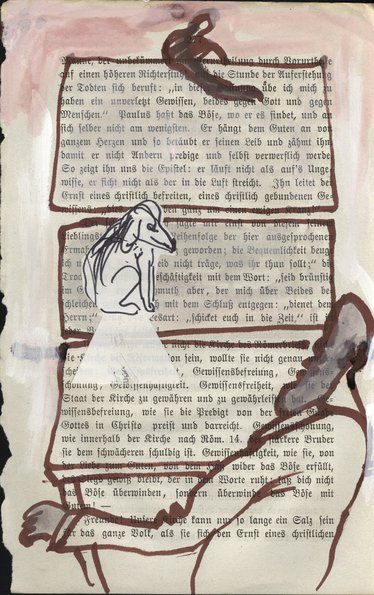 der unbekümmert um Verurtheilung durch Vorurtheile
auf einen höheren Richterstuhl die Stunde der Auferstehung
der Todten sich beruft: „in dieser übe ich mich zu
haben ein unverletzt Gewissen, beides gegen Gott und gegen
Menschen.“ Paulus haßt das Böse, wo er es findet, und an
sich selber nicht am wenigsten. Er hängt dem Guten an von
ganzem Herzen und so betäubt er seinen Leib und zähmt ihn
damit er nicht Andern predige und selbst verwerflich werde
So zeigt ihn uns die Epistel: er läuft nicht als auf's Unge
wisse, er ficht nicht als der in die Luft streicht. Ihn leitet der
Ernst eines christlich befreiten, eines christlich gebundenen Ge
wissens; ganz um einen ewigen Kranz!
Lieblings sagte mit Ernst von diesem
Reihenfolge der hier ausgesprochenen
geworden; die Bequemlichkeit beugt
nicht träge, was ihr thun sollt“; die
Geschäftigkeit mit dem Wort: „seid brünstig
aber, der mich über Beides
schleichen mit dem Schluß entgegen: „dienet dem
Herrn;“ Lesart: „schicket euch in die Zeit,“ ist
nicht die Kirche des Römerbriefs,
die Kirche der Reformation sein, wollte sie nicht genau
Gewissensbefreiung, Gewissens-
schonung, Gewissenhaftigkeit. Gewissensfreiheit, wie sie der
Staat der Kirche zu gewähren und zu gewährleisten hat. Ge
wissensbefreiung, wie sie die Predigt von der freien Gnade
Gottes in Christo preist und darreicht. Gewissensschonung,
wie innerhalb der Kirche nach Röm. 14. der stärkere Bruder
sie dem schwächeren schuldig ist. Gewissenhaftigkeit, wie sie, von
der Liebe zum Guten, von dem Haß wider das Böse erfüllt,
des Siegs gewiß bleibt, der in dem Worte ruht: laß dich nicht
das Böse überwinden, sondern überwinde das Böse mit
Gutem! —
Freunde! Unsere Kirche kann nur so lange ein Salz sein
für das ganze Volk, als sie sich den Ernst eines christlichen